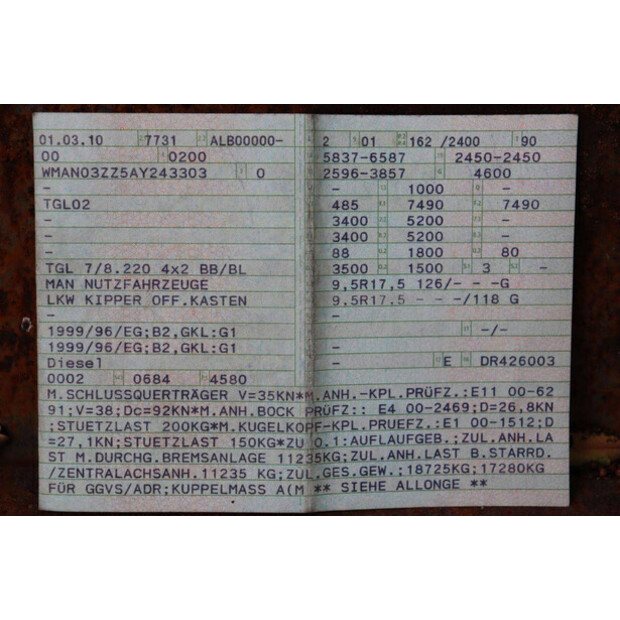 01.03.10 7731 ALB00000-
00 0200
WMAN03ZZ5AY243303 0
-
TGL02
-
-
-
TGL 7/8.220 4x2 BB/BL
MAN NUTZFAHRZEUGE
LKW KIPPER OFF.KASTEN
-
1999/96/EG;B2,GKL:G1
1999/96/EG;B2,GKL:G1
Diesel
0002 0684 4580
2 01 162 /2400 90
5837-6587 2450-2450
2596-3857 4600
- 1000 -
485 7490 7490
3400 5200 -
3400 5200 -
88 1800 80
3500 1500 3 -
9,5R17,5 126/- - -G
9,5R17,5 - - -/118 G
-
- -/-
-
- E DR426003
M.SCHLUSSQUERTRÄGER V=35KN*M.ANH.-KPL.PRÜFZ.:E11 00-62
91;V=38;Dc=92KN*M.ANH.BOCK PRÜFZ:: E4 00-2469;D=26,8KN
;STUETZLAST 200KG*M.KUGELKOPF-KPL-PRUEFZ.:E1 00-1512;D
=27,1KN;STUETZLAST 150KG*ZU O.1:AUFLAUFGEB.;ZUL.ANH.LA
ST M.DURCHG.BREMSANLAGE 11235KG;ZUL.ANH.LAST B.STARRD.
/ZENTRALACHSANH.11235 KG;ZUL.GES.GEW.:18725KG;17280KG
FÜR GGVS/ADR;KUPPELMASS A(M ** SIEHE ALLONGE **